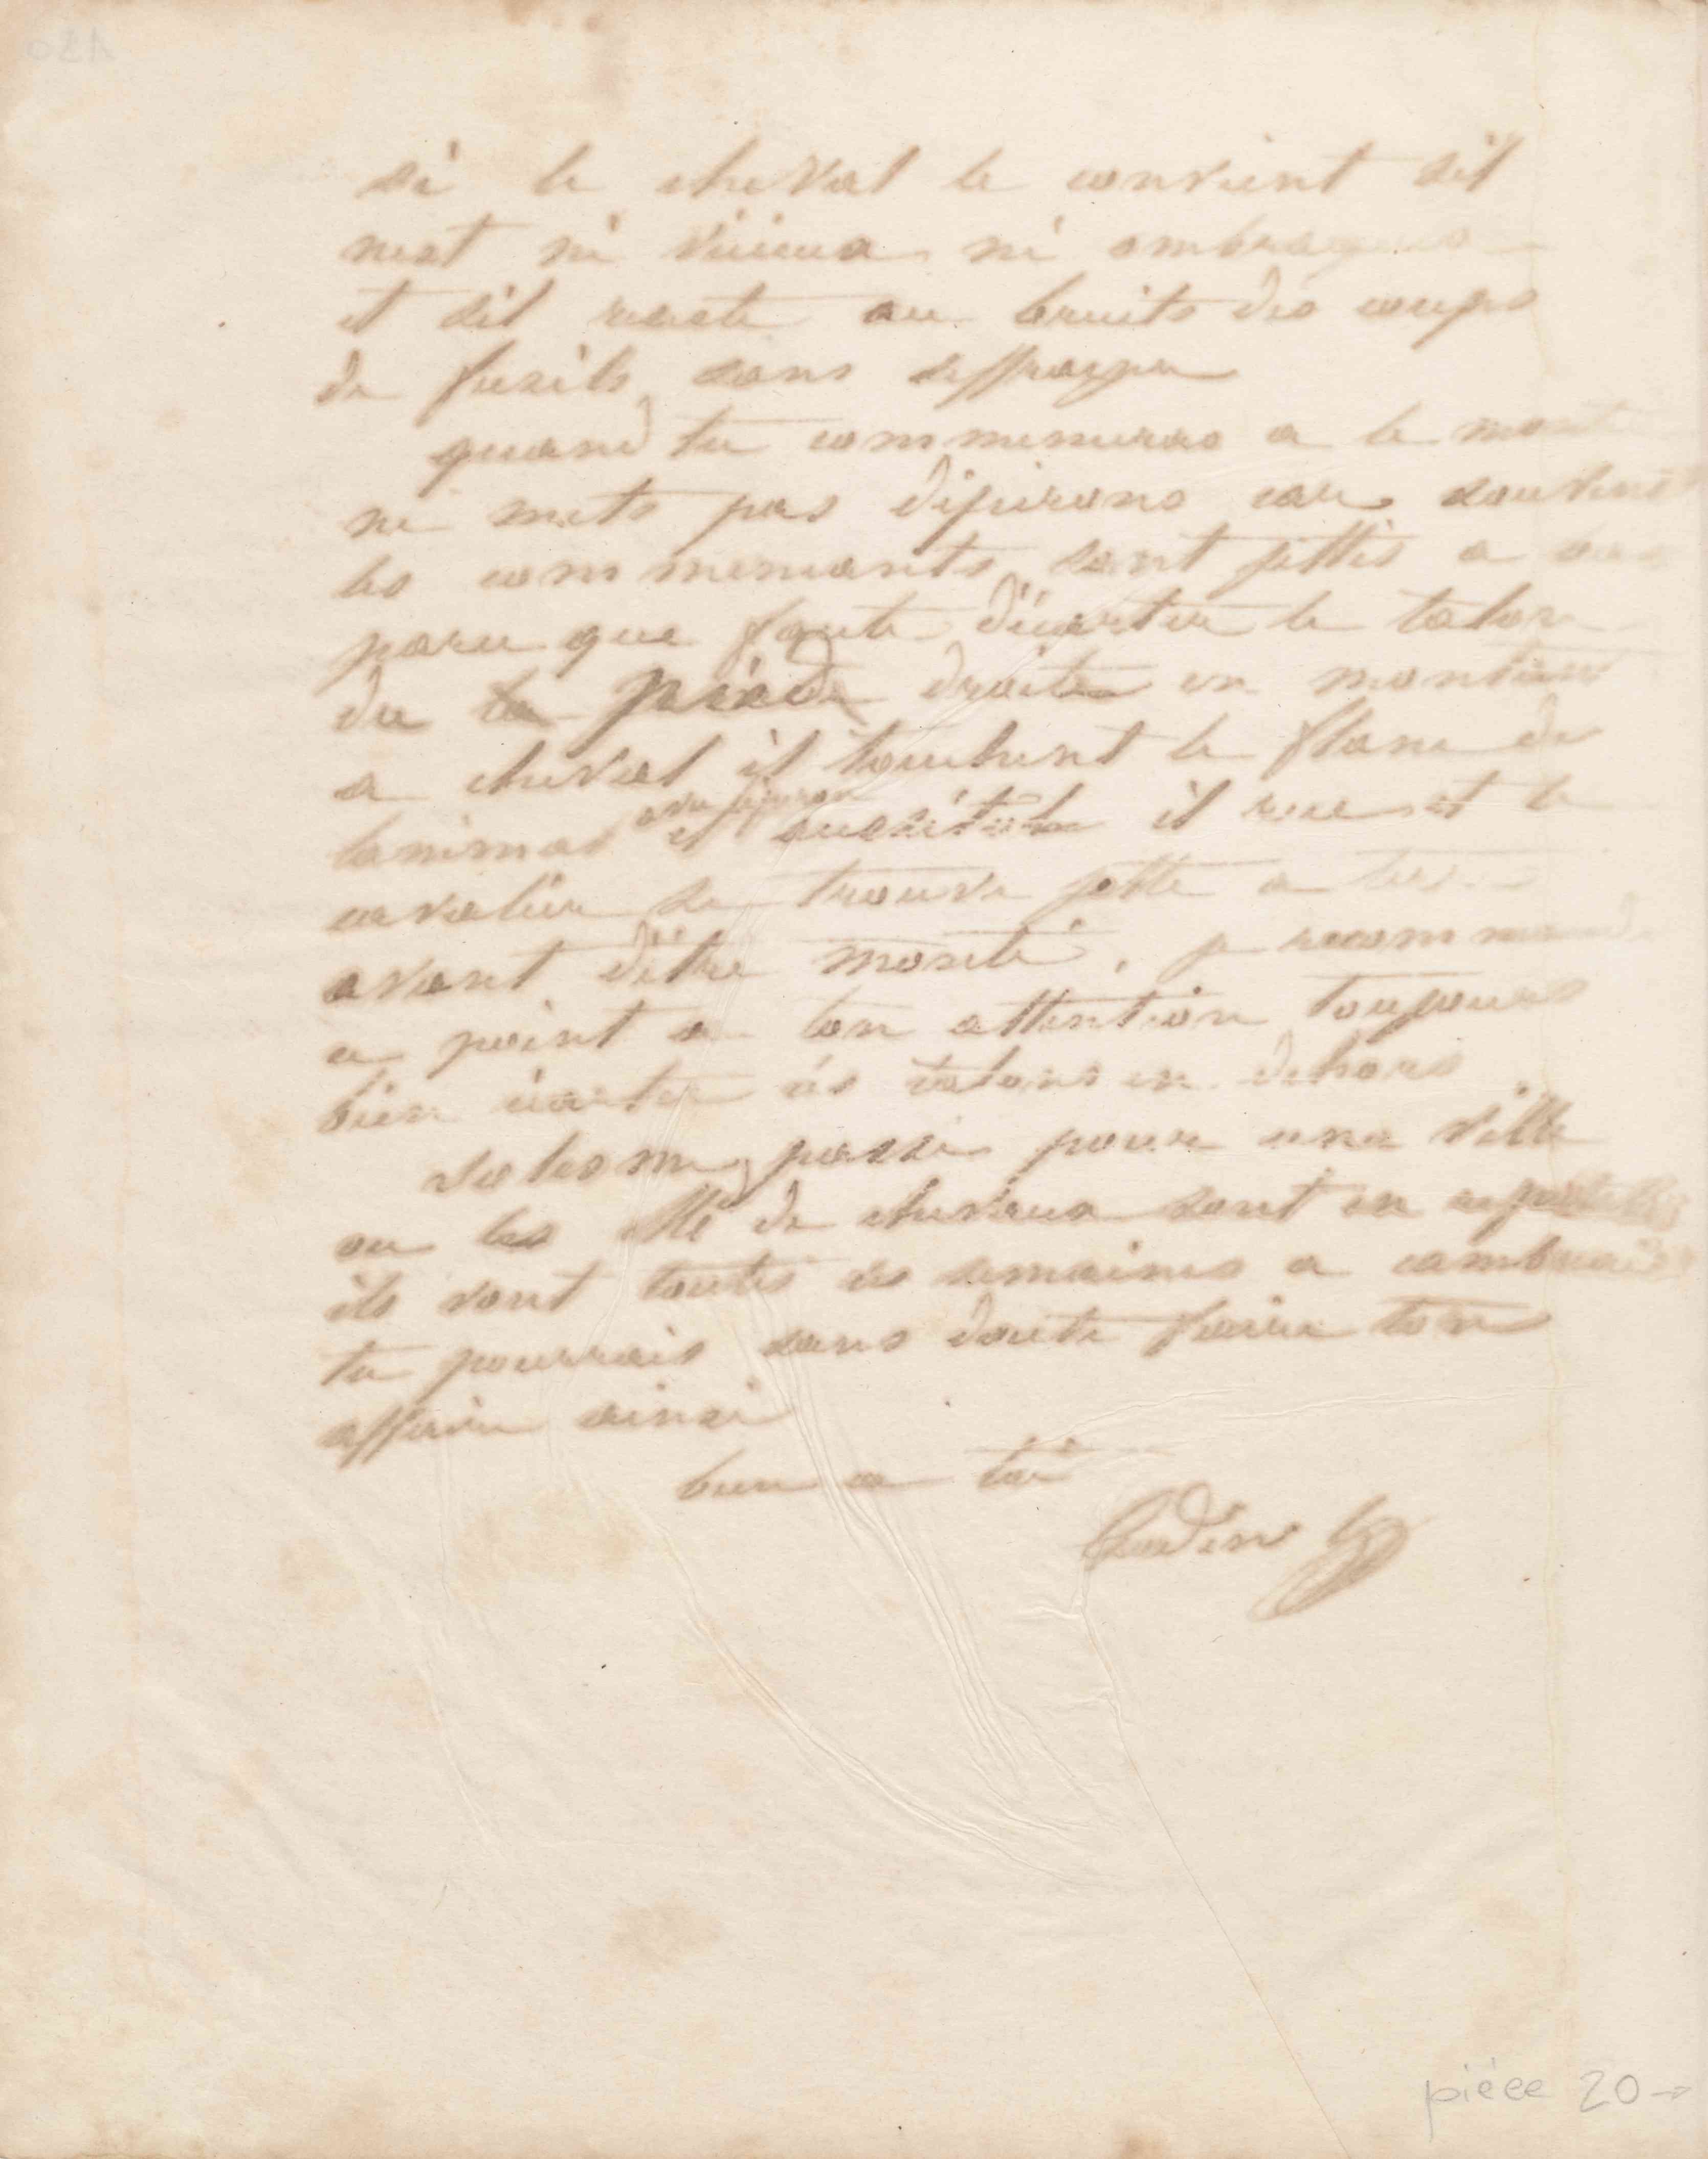 si le cheval te convient sil
nest ni vicieux ni ombrageux
et sil reste au bruits des coups
de fusils sans seffrayer
quand tu commenceras a le monter
ne mets pas déperons car souvent
les commencants sont jettés a
parce que faute décarter le talon
du pied droit en montant
a cheval il touchent le flanc de
lanimal avec leperon et aussitot il rue et le
cavalier se trouve jetté a terre
avant dêtre monté. je recommande
ce point a ton attention toujours
bien écarter les talons en dehors
passe pour une ville
ou les de chevaux sont en
ils vont toutes les semaines a cambrai
tu pourrais sans doute faire ton
affaire ainsi
bien a toi
Godin
pièce 20 →